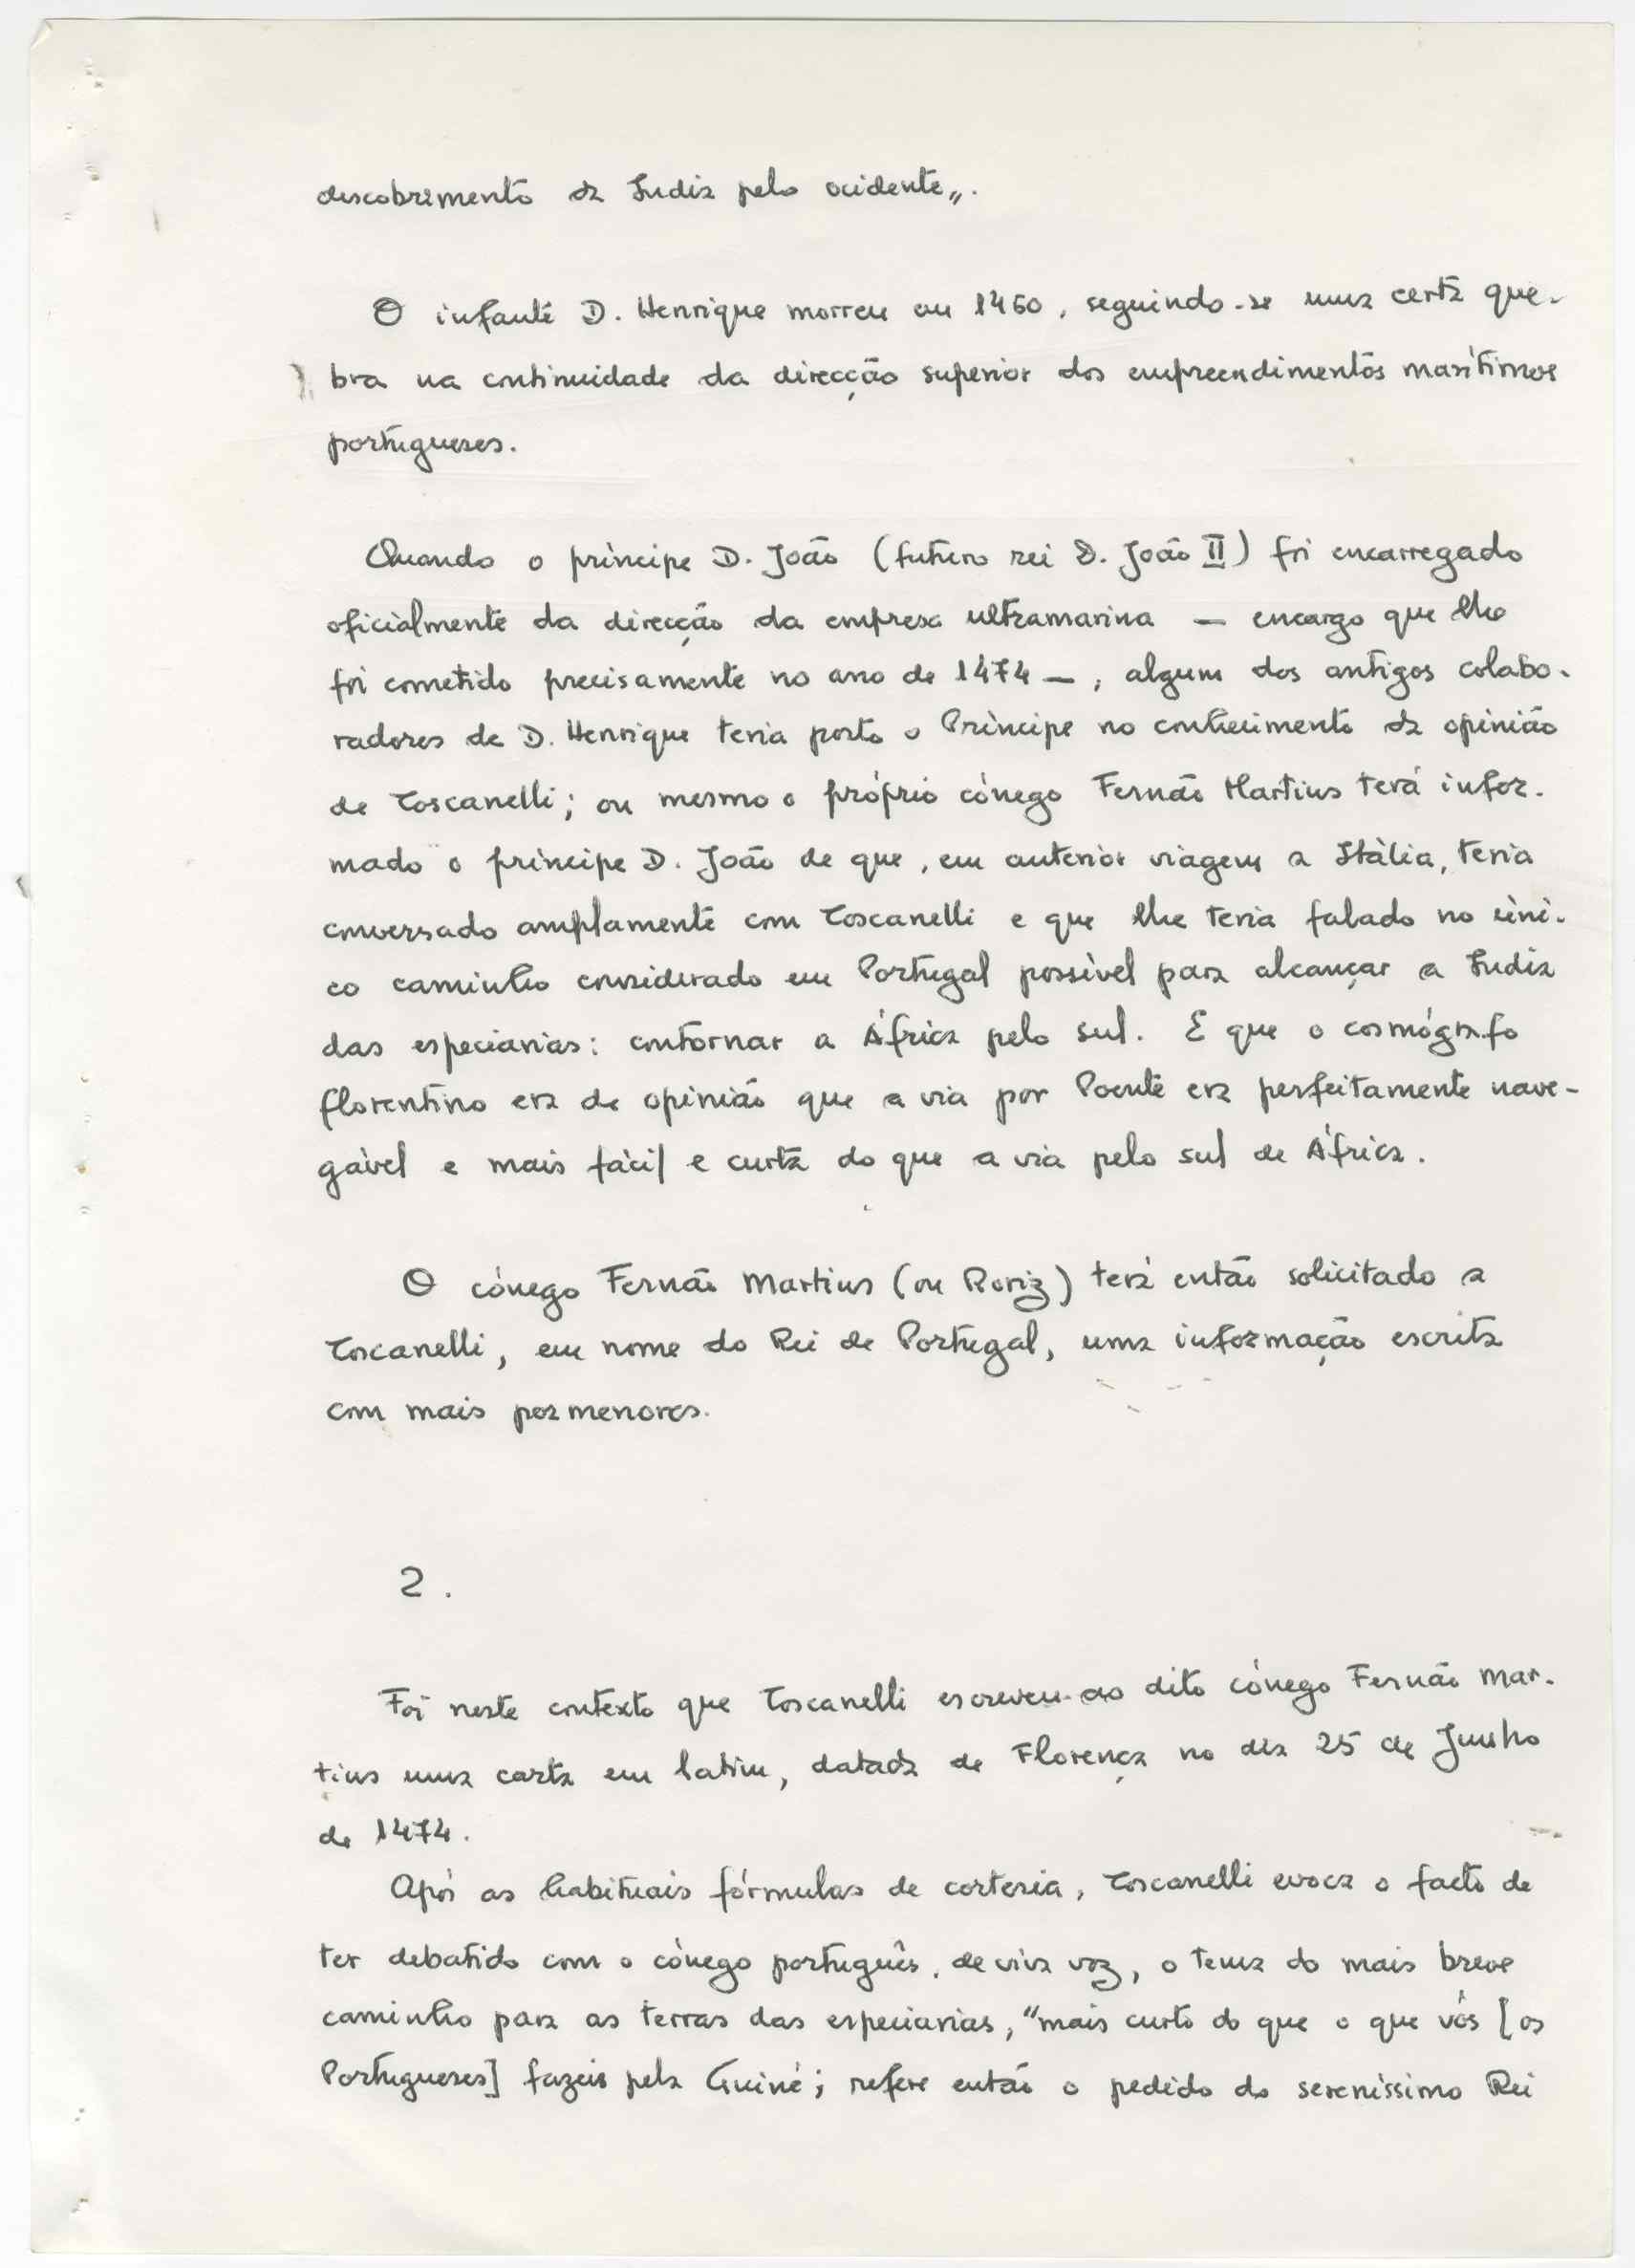 descobrimento da Índia pelo ocidente„.
O infante D. Henrique morreu em 1460, seguindo-se uma certa que-
bra na continuidade da direcção superior dos empreendimentos marítimos
portugueses.
Quando o príncipe D. João (futuro rei D. João II) foi encarregado
oficialmente da direcção da empresa ultramarina — encargo que lhe
foi cometido precisamente no ano de 1474 —, algum dos antigos colabo-
radores de D. Henrique teria posto o Príncipe no conhecimento da opinião
de Toscanelli; ou mesmo o próprio cónego Fernão Martins terá infor-
mado o príncipe D. João de que, em anterior viagem a Itália, teria
conversado amplamente com Toscanelli e que lhe teria falado no úni-
co caminho considerado em Portugal possível para alcançar a Índia
das especiarias: contornar a África pelo sul. E que o cosmógrafo
florentino era de opinião que a via por Poente era perfeitamente nave-
gável e mais fácil e curta do que a via pelo sul de África.
O cónego Fernão Martins (ou Roriz) terá então solicitado a
Toscanelli, em nome do Rei de Portugal, uma informação escrita
com mais pormenores.
2.
Foi neste contexto que Toscanelli escreveu ao dito cónego Fernão Mar-
tins uma carta em latim, datada de Florença no dia 25 de Junho
de 1474.
Após as habituais fórmulas de cortesia, Toscanelli evoca o facto de
ter debatido com o cónego português, de viva voz, o tema do mais breve
caminho para as terras das especiarias, "mais curto do que o que vós [os
Portugueses] fazeis pela Guiné; refere então o pedido do sereníssimo Rei